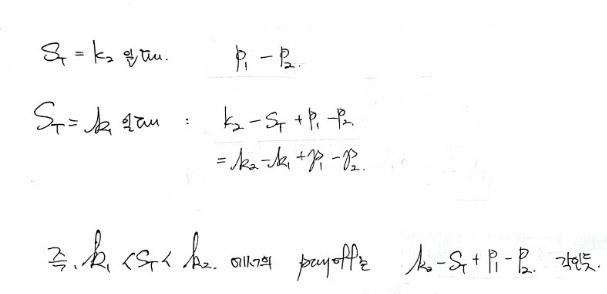 S_T = k_2 일때. p_1 - p_2.
S_T = k_1 일때 : k_2 - S_T + p_1 - p_2
= k_2 - k_1 + p_1 - p_2.
즉, k_1 < S_T < k_2. 에서의 payoff는 k_2 - S_T + p_1 - p_2.